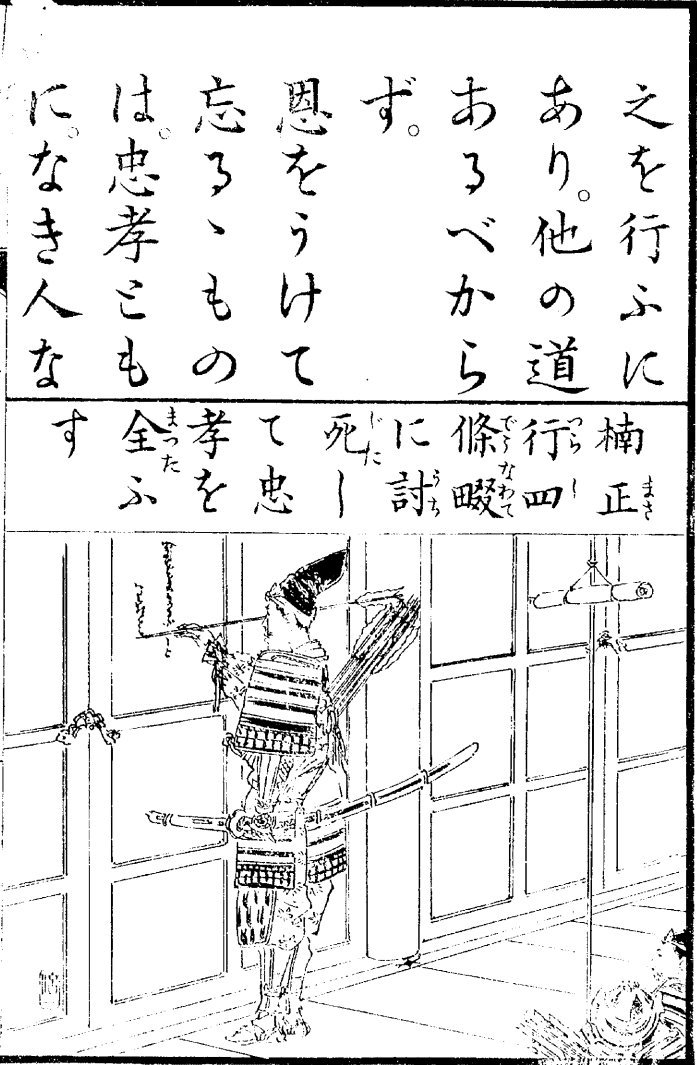 之を行ふに
あり。他の道
あるべから
ず。
恩をうけて
忘るゝもの
は。忠孝ともに。
なき人な
楠正
行四
條畷
に討
死し
て忠
孝を
全ふ
す